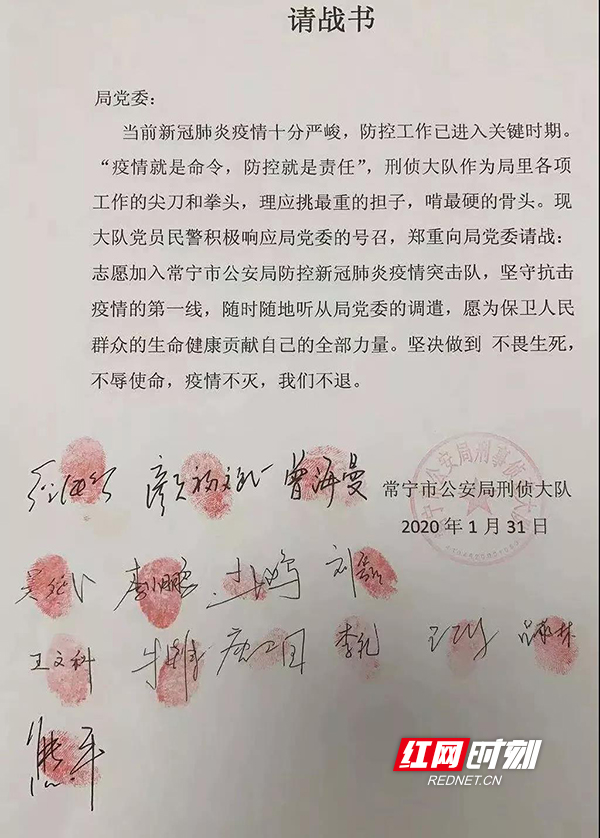 请战书
局党委：
当前新冠肺炎疫情十分严峻，防控工作已进入关键时期。
“疫情就是命令，防控就是责任”，刑侦大队作为局里各项
工作的尖刀和拳头，理应挑最重的担子，啃最硬的骨头。现
大队党员民警积极响应局党委的号召，郑重向局党委请战：
志愿加入常宁市公安局防控新冠肺炎疫情突击队，坚守抗击
疫情的第一线，随时随地听从局党委的调遣，愿为保卫人民
群众的生命健康贡献自己的全部力量。坚决做到 不畏生死，
不辱使命，疫情不灭，我们不退。
曾海曼
常宁市公安局刑侦大队
2020 年 1 月 31 日
李鹏
王文科 李礼
红网时刻
REDNET.CN